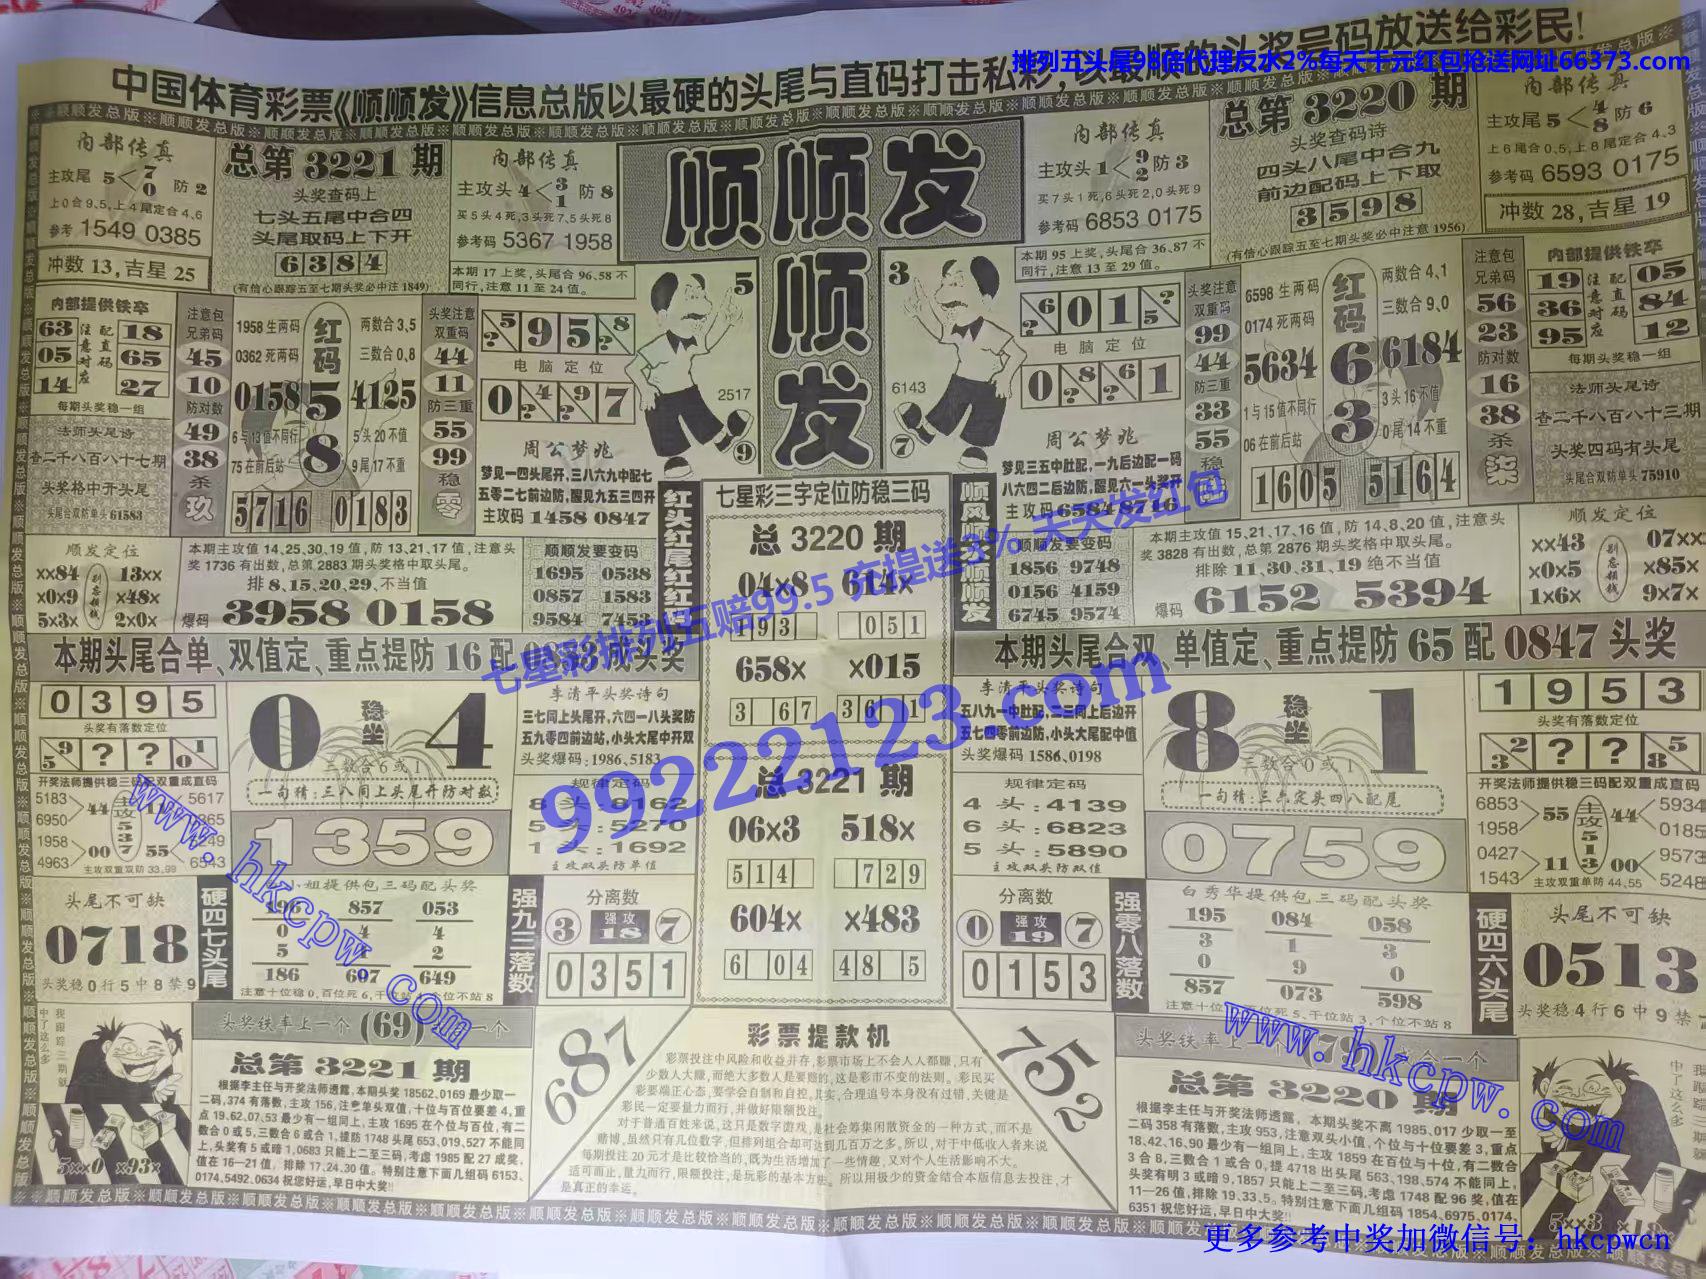 排列五头尾98倍代理反水2%每天千元红包抢送网址66373.com
中国体育彩票《顺顺发》信息总版以最硬的头尾与直码打击私彩,以最顺的头奖号码放送给彩民!
内部传真
主攻尾 5 7 0 防 2
上0合9、5,上4尾定合4、6
参考 1549 0385
冲数 13,吉星 25
总第 3221 期
头奖查码上
七头五尾中合四
头尾取码上下开
6384
(有信心跟踪五至七期头奖必中注 1849)
内部传真
主攻头 4 3 1 防 8
买5头4死,3头死7、5头死8
参考码 5367 1958
本期 17 上奖,头尾合 96、58 不
同行,注意 11 至 24 值。
顺顺发
顺
发
内部传真
主攻头 1 9 2 防 3
买7头1死,6头死2、0头死9
参考码 6853 0175
本期 95 上奖,头尾合 36、87 不
同行,注意 13 至 29 值。
总第 3220 期
头奖查码诗
四头八尾中合九
前边配码上下取
3598
(有信心跟踪五至七期头奖必中注意 1956)
内部传真
主攻尾 5 4 8 防 6
上6尾合0、5,上8尾定合4、3
参考码 6593 0175
冲数 28,吉星 19
内部提供铁卒
63 注 配 18
05 意 直 65
14 对 码 27
应
每期头奖稳一组
法师头尾诗
查二千八百八十七期
头奖格中开头尾
头尾合双防单头 61583
注意包
兄弟码
45
10
防对数
49
38
杀
玖
1958 生两码
0362 死两码
0158
6与13值不同行
75 在前后站
红码
5
8
两数合 3、5
三数合 0、8
4125
5头20不值
9尾17不重
5716 0183
头奖注意
双重码
44
11
防三重
55
99
稳
零
?5 9 5 ?8
电脑定位
0 4? 9? 7
周公梦兆
梦见一四头尾开,三八六九中配七
五零二七前边防,醒见九五三四开
主攻码 1458 0847
5
2517
9
3
6143
7
?6 0 1 5?
电脑定位
0 ?8 ?6 1
周公梦兆
梦见三五中肚配,一九后边配一码
八六四二后边防,醒见六一头奖开
主攻码 6584 8716
头奖注意
双重码
99
44
防三重
33
55
稳
6598 生两码
0174 死两码
5634
1与15值不同行
06 在前后站
红码
6
3
两数合 4、1
三数合 9、0
6184
3头16不值
0尾14不重
1605 5164
注意包
兄弟码
56
23
防对数
16
38
杀
柒
内部提供铁卒
19 注 配 05
36 意 直 84
95 对 码 12
应
每期头奖稳一组
法师头尾诗
查二千八百八十三期
头奖四码有头尾
头尾合双防单头 75910
顺发定位
xx84 13xx
x0x9 x48x
5x3x 2x0x
别忘领钱
本期主攻值 14、25、30、19 值,防 13、21、17 值,注意头
奖 1736 有出数,总第 2883 期头奖格中取头尾。
排 8、15、20、29、不当值
爆码 3958 0158
顺顺发要变码
1695 0538
0857 1583
9584 7453
红头红尾红红
七星彩三字定位防稳三码
总 3220 期
04x8 614x
193 051
658x x015
3 67 36 1
总 3221 期
06x3 518x
514 729
604x x483
6 04 48 5
顺风顺水顺顺发
顺顺发要变码
1856 9748
0156 4159
6745 9574
本期主攻值 15、21、17、16 值,防 14、8、20 值,注意头
奖 3828 有出数,总第 2876 期头奖格中取头尾。
排除 11、30、31、19 绝不当值
爆码 6152 5394
顺发定位
xx43 07xx
xx0x5 x85x
1x6x 9x7x
别忘领钱
本期头尾合单、双值定、重点提防 16 配 0853 成头奖
本期头尾合双、单值定、重点提防 65 配 0847 头奖
0395
头奖有落数定位
5 9 ? ? 0 1
0 稳坐 4
三数合 6 或 1
一句猜:三八同上头尾开防对数
李清平头奖诗句
三七同上头尾开,六四一八头奖防
五九零四前边站,小头大尾中开双
头奖爆码:1986、5183
李清平头奖诗句
五八九一中肚配,二三同上后边开
五七四零前边防,小头大尾配中值
头奖爆码 1586、0198
8 稳坐 1
三数合 0 或 1
一句猜:三单定头四八配尾
1953
头奖有落数定位
3 2 ? ? 8 5
开奖法师提供稳三码双重成直码
5183 5617
6950 44 主攻 537 11
1958 00 55
4963 6543
主攻双重双防 33、99
1359
规律定码
8 头:9162
5 头:5270
1 头:1692
主攻双头防单值
规律定码
4 头:4139
6 头:6823
5 头:5890
主攻双头防双值
0759
开奖法师提供稳三码配双重成直码
6853 5934
1958 55 主攻 513 44 0185
0427 11 00 9573
1543 5248
主攻双重单防 44、55
头尾不可缺
0718
头奖稳 0 行 5 中 8 禁 9
硬四七头尾
小姐提供包三码配头奖
496 857 053
0 4 4
5 4 2
186 607 649
注意十位稳 0,百位死 6,千位站 4,个位不站 8
强九三落数
分离数
3 强攻 18 7
0351
分离数
0 强攻 19 7
0153
强零八落数
白秀华提供包三码配头奖
195 084 058
3 1 3
0 9 0
857 073 598
硬四六头尾
头尾不可缺
0513
头奖稳 4 行 6 中 9 禁 7
我跟踪三期就
中了这么多
5xx0 x93x
头奖铁率上一个 (69) 一个
总第 3221 期
根据李主任与开奖法师透露,本期头奖 18562、0169 最少取一
二码,374 有落数,主攻 156,注意单头双值,十位与百位要差 4,重
点 19、62、07、53 最少有一组同上,主攻 1695 在个位与百位,有二
数合 0 或 5,三数合 6 或合 1,提防 1748 头尾 653、019、527 不能同
上,头奖有 5 或暗 1,0683 只能上二至三码,考虑 1985 配 27 成奖,
值在 16—21 值,排除 17、24、30 值。特别注意下面几组码 6153、
0174、5492、0634 祝您好运,早日中大奖!!
687
彩票提款机
彩票投注中风险和收益并存,彩票市场上不会人人都赚,只有
少数人大赚,而绝大多数人是要赔的,这是彩市不变的法则。彩民买
彩要端正心态,要学会自制和自控,其实,合理追号本身没有过错,关键是
彩民一定要量力而行,并做好限额投注。
对于普通百姓来说,这只是数字游戏,是社会筹集闲散资金的一种方式,而不是
赌博,虽然只有几位数字,但排列组合却可达到几百万之多,所以,对于中低收入者来说
每期投注 20 元才是比较恰当的,既为生活增加了一些情趣,又对个人生活影响不大。
适可而止,量力而行,限额投注,是玩彩的基本方法。所以用极少的资金结合本版信息去投注,才
是真正的幸运。
752
总第 3220 期
根据李主任与开奖法师透露,本期头奖不离 1985、017 少取一至
二码 358 有落数,主攻 953,注意双头小值,个位与十位要差 3,重点
18、42、16、90 最少有一组同上,主攻 1859 在百位与十位,有二数合
3 合 8,三数合 1 或合 0,提 4718 出头尾 563、198、574 不能同上,
头奖有明 3 或暗 9,1857 只能上二至三码,考虑 1748 配 96 奖,值在
11—26 值,排除 19、33、5。特别注意下面几组码 1854、6975、0174、
6351 祝您好运,早日中大奖!!
我跟踪三期就
中了这么多
5xx3 x18
七星彩排列五赔99.5 充提送3% 天天发红包
99222123.com
www.hkcpw.com
www.hkcpw.com
更多参考中奖加微信号:hkcpwcn